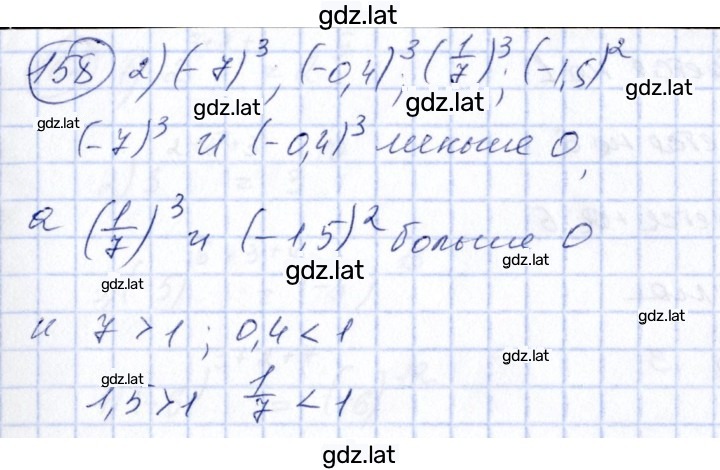 gdz.lat
158 2) (-7)³; (-0,4)³; (1/7)³; (-1,5)²
gdz.lat
gdz.lat
gdz.lat
gdz.lat
gdz.lat
(-7)³ и (-0,4)³ меньше 0,
а (1/7)³ и (-1,5)² больше 0
gdz.lat
gdz.lat
gdz.lat
и 7 > 1; 0,4 < 1
gdz.lat
gdz.lat
1,5 > 1 1/7 < 1
gdz.lat